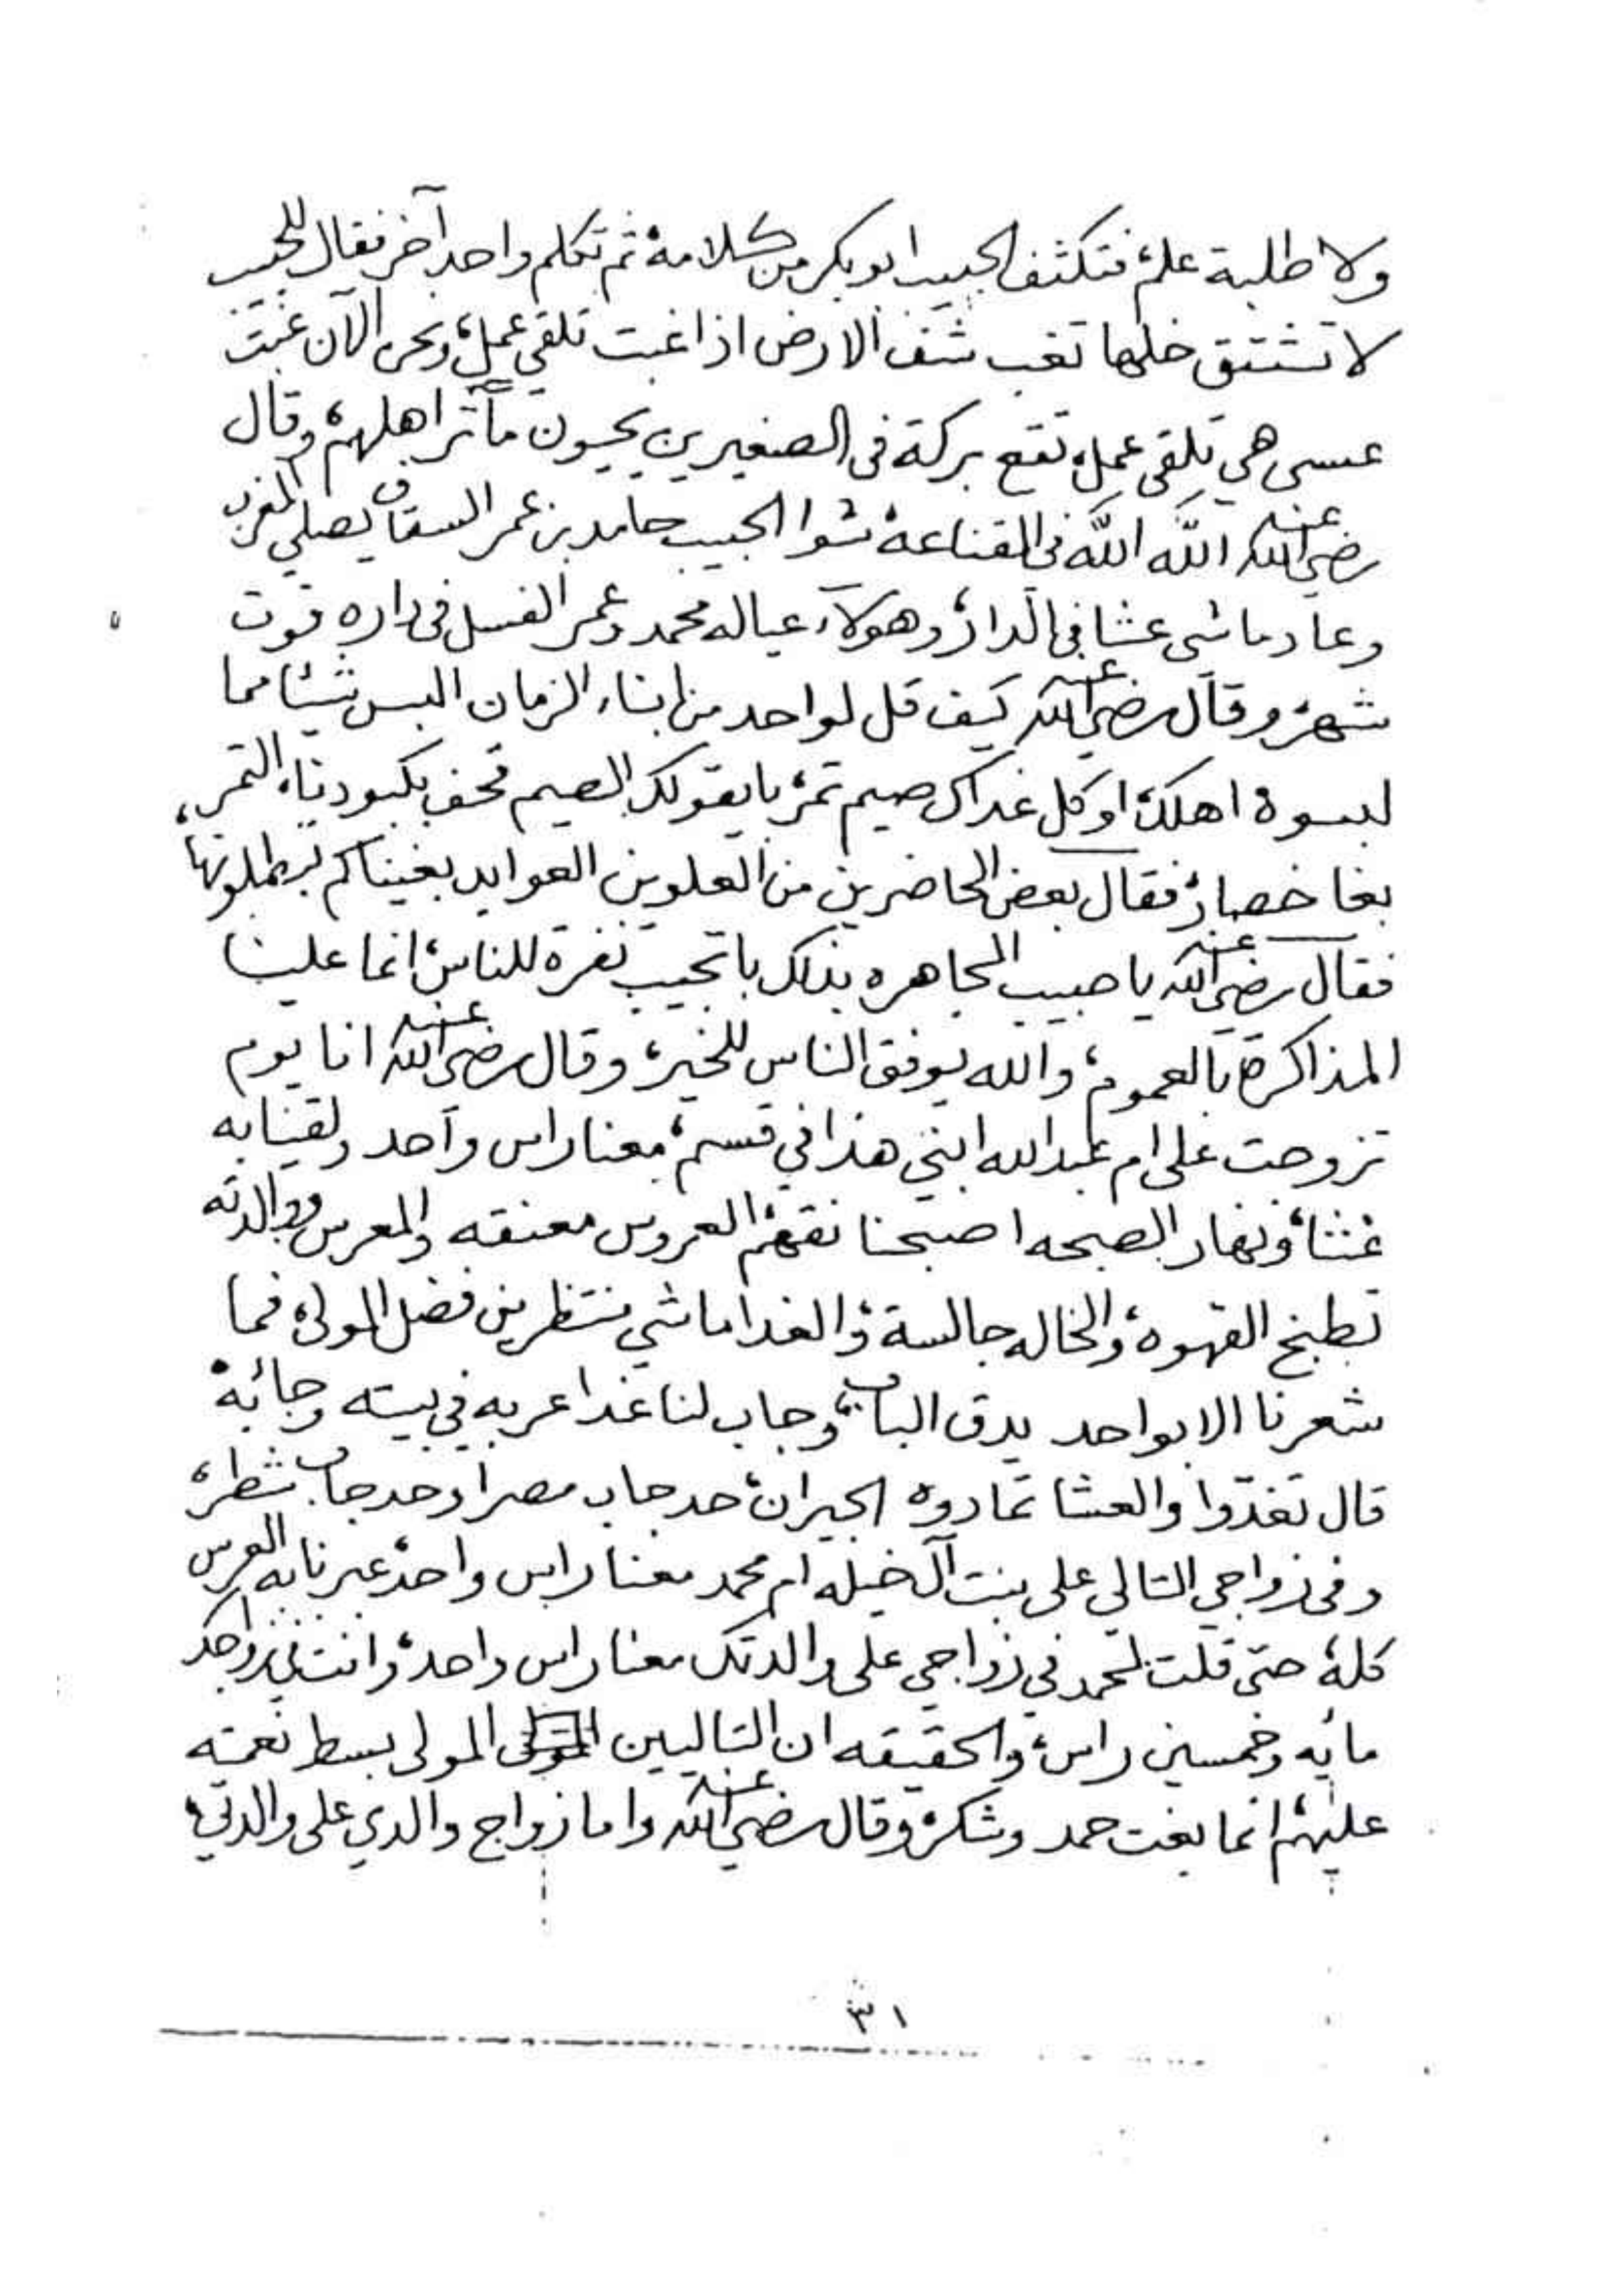 ولا طلبة علم، فتكثف الحبيب ابوبكر من كلامه، ثم تكلم واحد آخر فقال للحبيب
لا تشتق خلها تغب شف الارض اذا غبت تلقي عمل، ونحن الآن غبت
عسى هي تلقي عمل، تقع بركة في الصغيرين يحيون مآثر اهلهم، وقال
رضي الله عنه الله الله في القناعة، شوا الحبيب حامد بن عمر السقاف يصلي المغرب
وعاد ماشي عشا في الدار، وهولاء عياله محمد وعمر الفسل في داره قوت
شهر، وقال رضي الله عنه كيف قل لواحد من ابناء الزمان البس شيئا مما
لبسوه اهلك، او كل غداك صيم تمر، بايقولك الصيم تحف بكبودنا، التمر،
بغا خصار، فقال بعض الحاضرين من العلويين العوايد بغيناكم تبطلونها
فقال رضي الله عنه يا حبيب المجاهره بذلك باتجيب نفرة للناس، انما علينا
المذاكرة بالعموم، والله يوفق الناس للخير، وقال رضي الله عنه انا يوم
تزوجت على ام عبدالله ابني هذا في قسم، معنا راس واحد ولقينا به
عشاء، ونهار الصبحه اصبحنا نقهم العروس معنقه والمعرس ووالدته
تطبخ القهوة، والخاله جالسة، والغدا ماشي منتظرين فضل المولى، فما
شعرنا الا بواحد يدق الباب، وجاب لنا غدا عربه في بيته وجابه
قال تغدوا والعشا تمادوه الجيران، حد جاب مصرا وحد جاب شطر،
وفي زواجي التالي على بنت آل خيله ام محمد معنا راس واحد، عبرنا به العرس
كله، حتى قلت لمحمد في زواجي على والدتك معنا راس واحد، وانت في زواجك
مايه وخمسين راس، والحقيقه ان التاليين المولى بسط نعمته
عليهم، انما بغت حمد وشكر، وقال رضي الله عنه واما زواج والدي على والدتي،
٣١